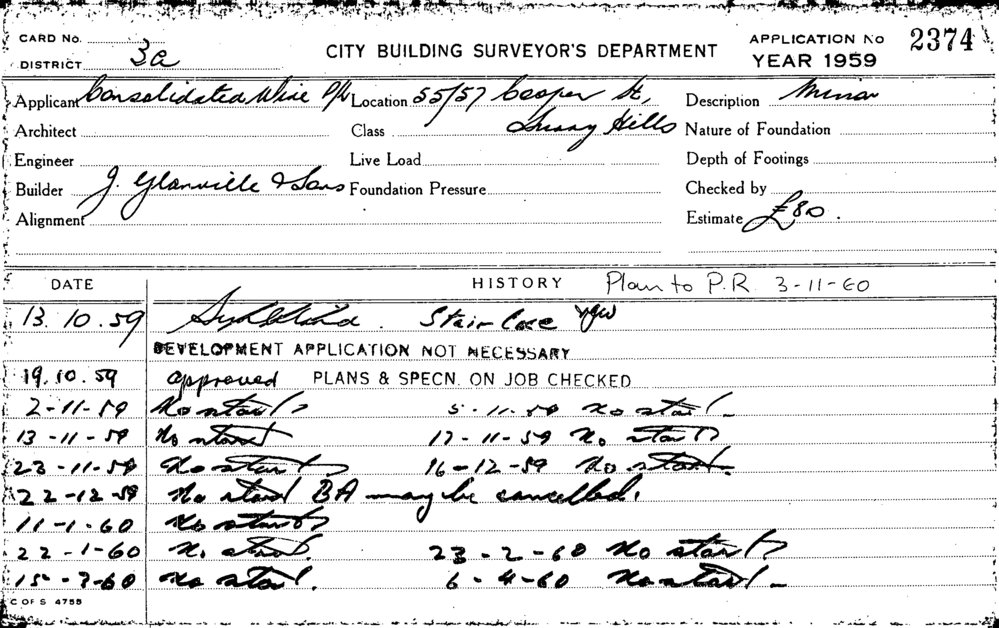 CARD No.
CITY BUILDING SURVEYOR'S DEPARTMENT
APPLICATION No 2374
DISTRICT 3a
YEAR 1959
Applicant Consolidated Wine P/L Location 55/57 Cooper St, Description Minor
Architect Class Surry Hills Nature of Foundation
Engineer Live Load Depth of Footings
Builder J. Glanville & Sons Foundation Pressure Checked by
Alignment Estimate £80.
DATE HISTORY Plan to P.R. 3-11-60
13.10.59 Stair Case
DEVELOPMENT APPLICATION NOT NECESSARY
19.10.59 approved PLANS & SPECN. ON JOB CHECKED
2-11-59 No start 5-11-59 No start
13-11-59 No start 17-11-59 No start
23-11-59 No start 16-12-59 No start
22-12-59 No start BA may be cancelled.
11-1-60 No start
22-1-60 No start. 23-2-60 No start
15-3-60 No start. 6-4-60 No start
C OF S 4755